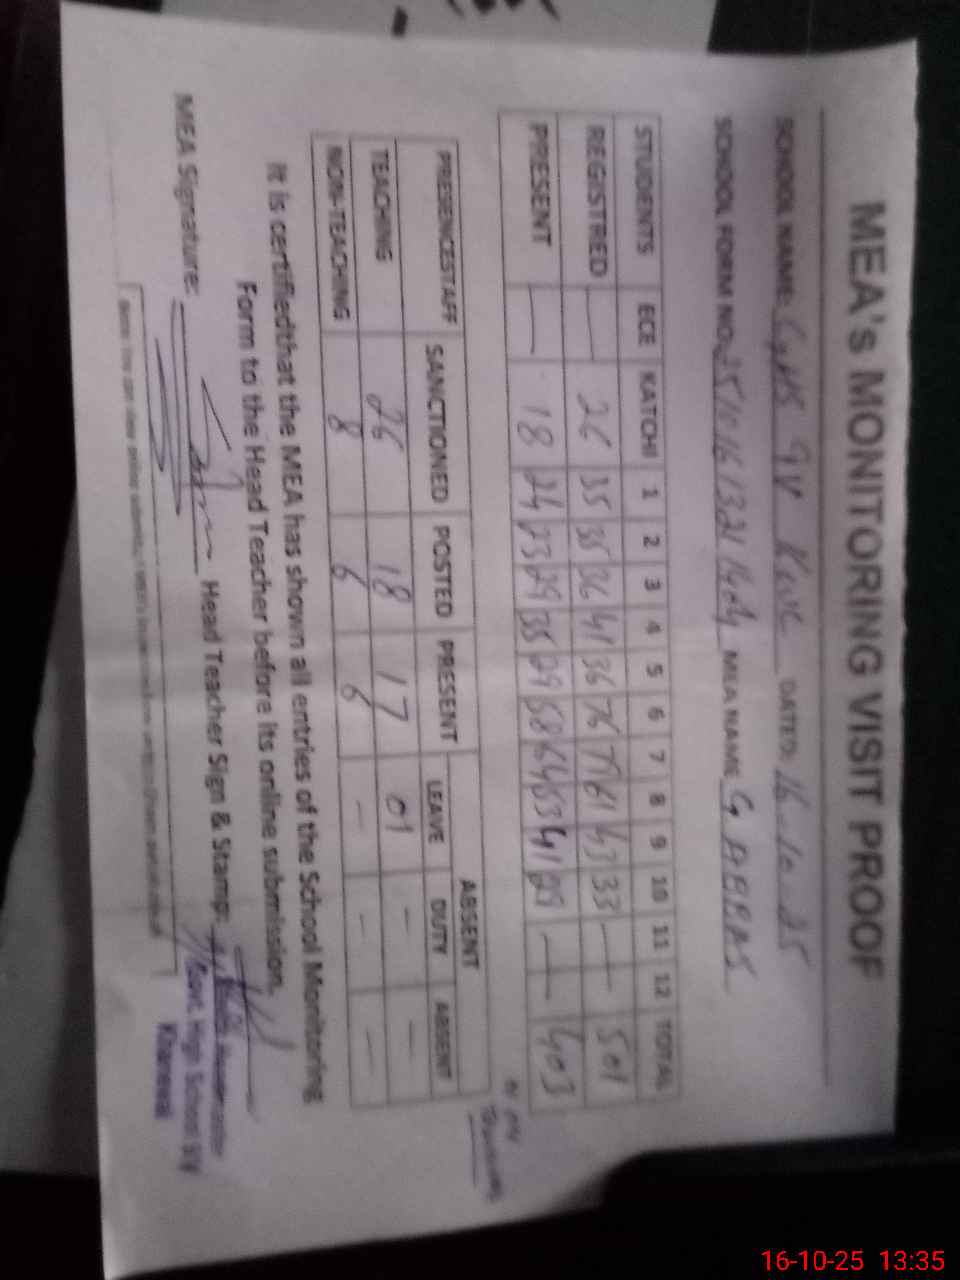 MEA's MONITORING VISIT PROOF
SCHOOL NAME: GHS 9V KWL DATED: 16-10-25
SCHOOL FORM NO. MEA NAME G ABBAS
STUDENTS ECE KATCHI 1 2 3 4 5 6 7 8 9 10 11 12 TOTAL
REGISTRED — 26 35 35 36 41 36 76 79 61 43 33 — — 501
PRESENT — 18 24 23 29 35 29 58 64 53 41 29 — — 403
PRESENCESTAFF SANCTIONED POSTED PRESENT ABSENT
LEAVE DUTY ABSENT
TEACHING 26 18 17 01 - -
NON-TEACHING 8 6 6 - - -
It is certifiedthat the MEA has shown all entries of the School Monitoring
Form to the Head Teacher before its online submission.
MEA Signature: Head Teacher Sign & Stamp:
Govt. High School 9/V
Khanewal
16-10-25 13:35